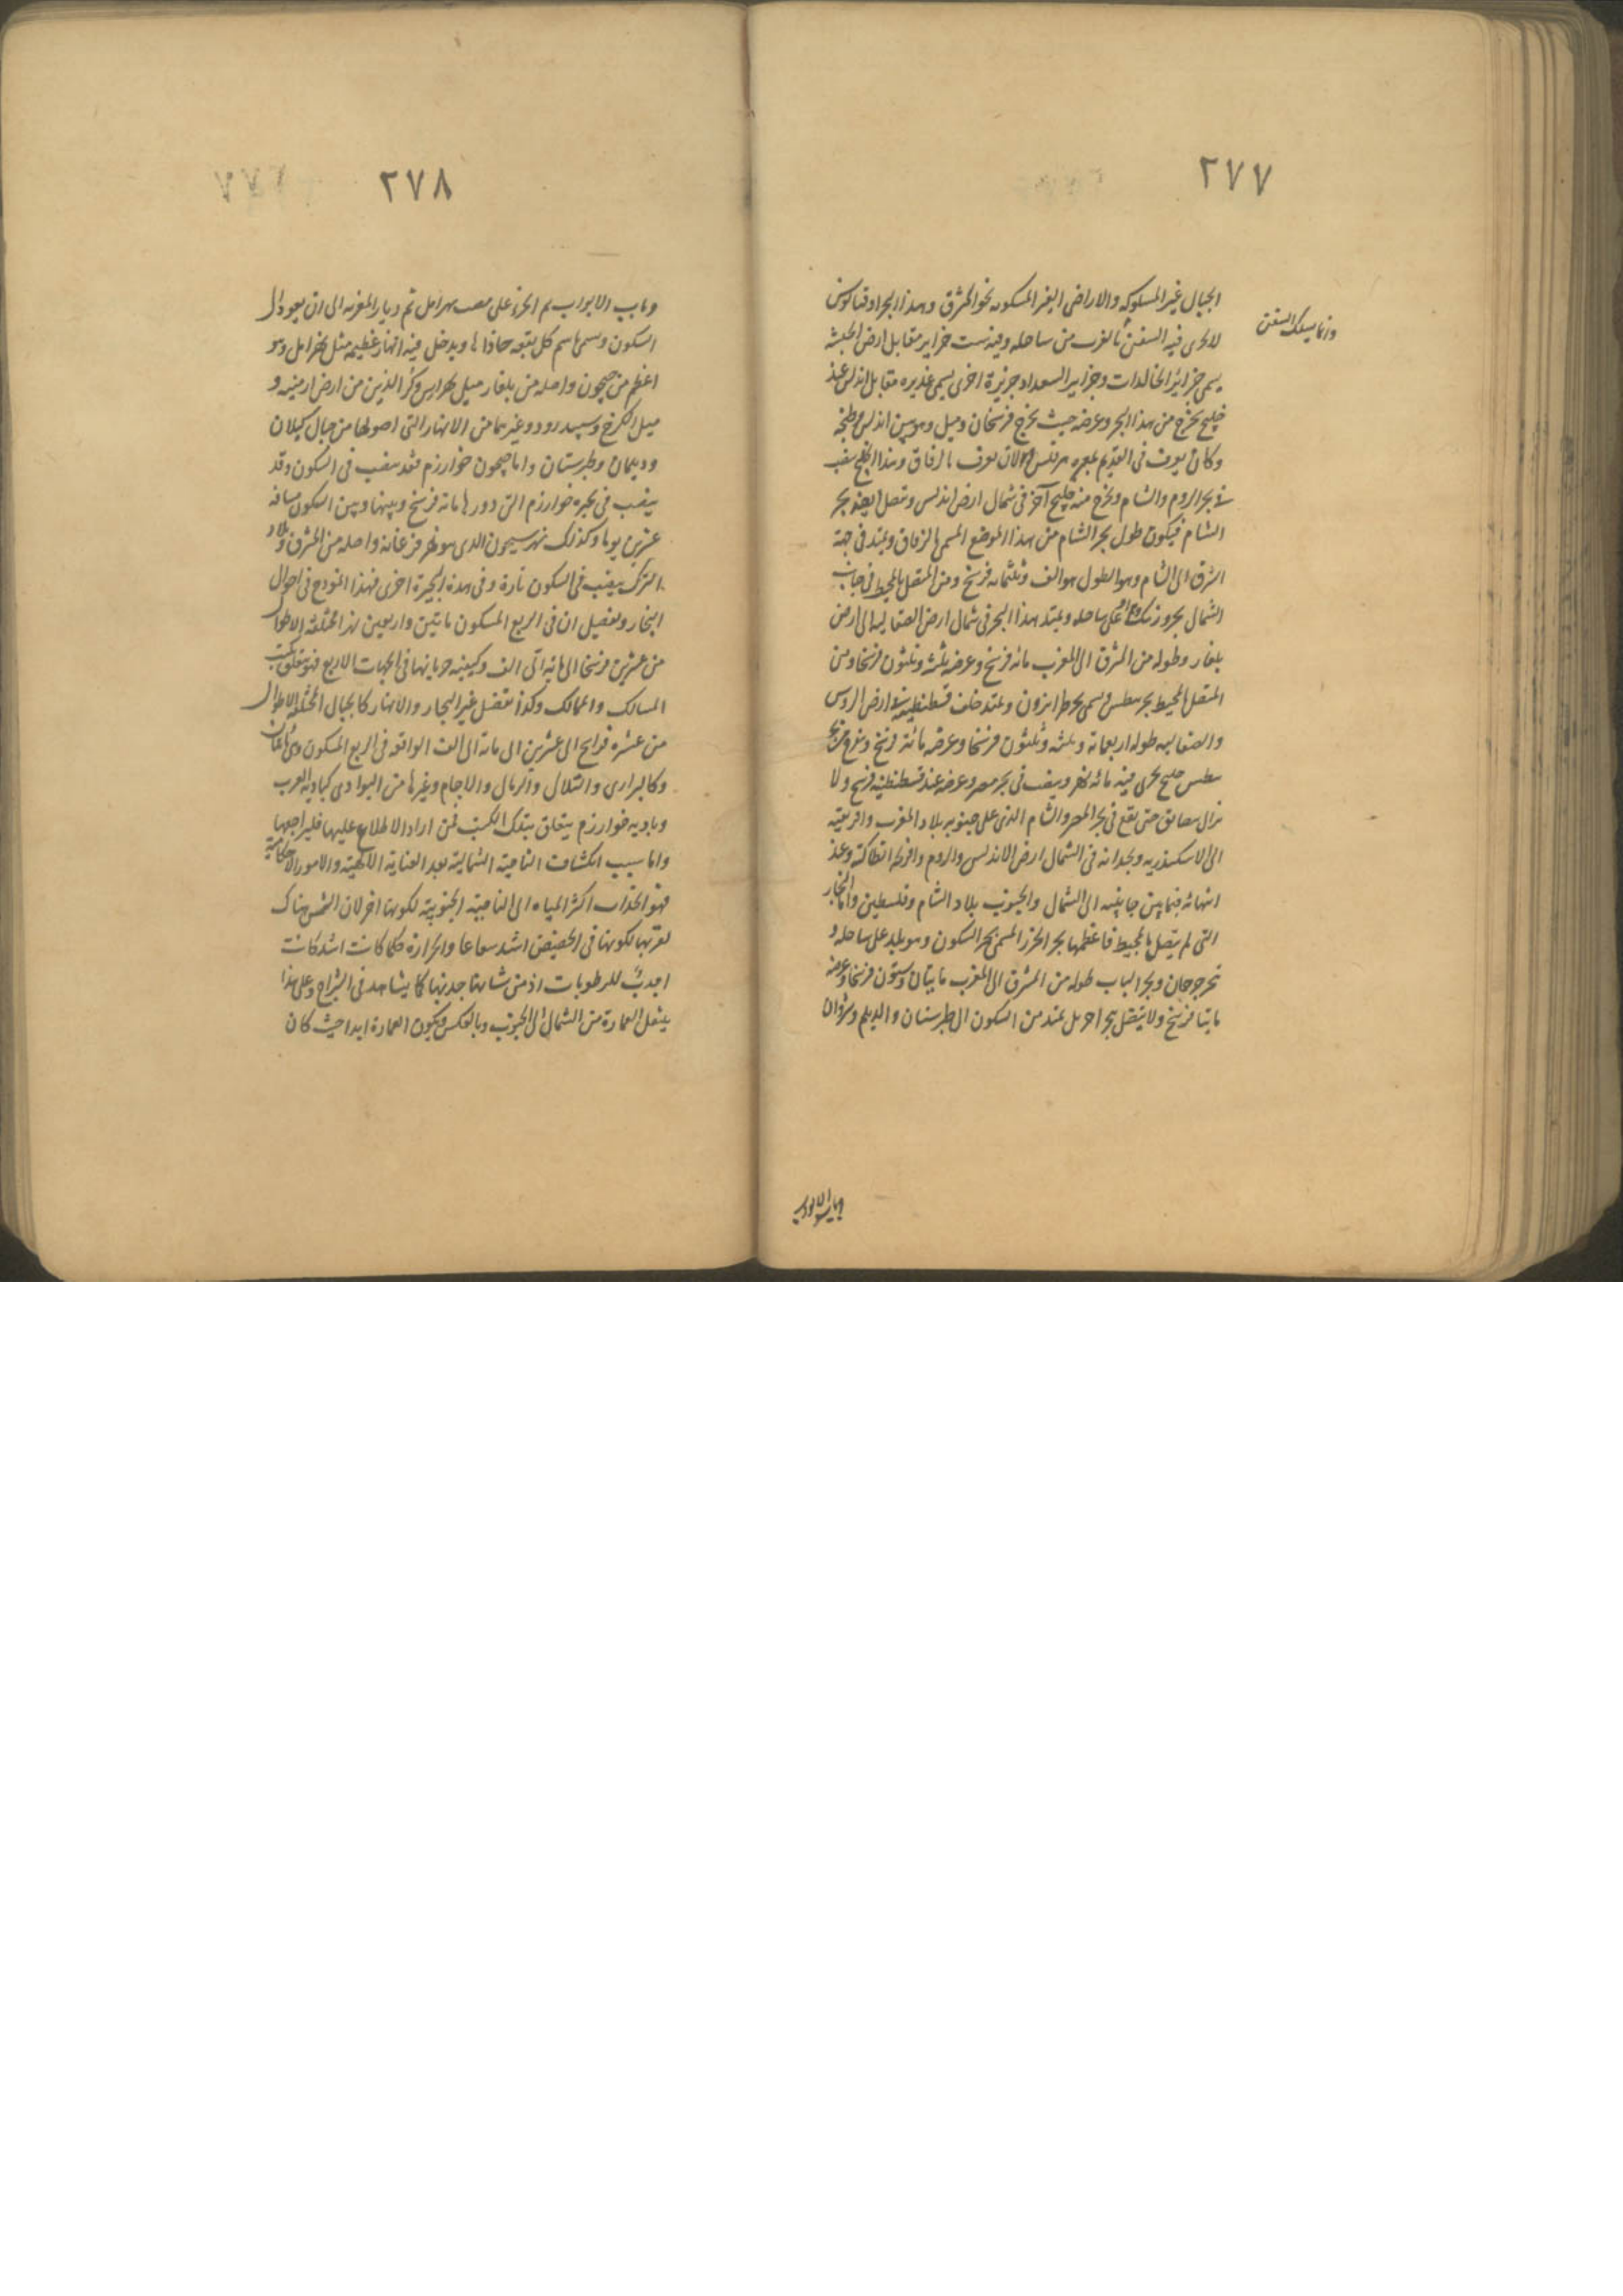 ٢٧٧
الجبال غير المسلوكه والاراضى الغير المسكونه نحو المشرق وهذا البحر اوقيانوس
لا يجرى فيه السفن بالقرب من ساحله وفيه ست جزاير مقابل ارض الحبشه
وانما يسلك السفن
يسمى جزائر الخالدات وجزاير السعداء وجزيرة اخرى يسمى غديره مقابل اندلس عند
خليج يخرج من هذا البحر وعرضه حيث يخرج فرسخان وميل وهو بين اندلس وطنجه
وكان يعرف فى القديم بمعبره والان يعرف بالزقاق وهذا الخليج ينصب
فى بحر الروم والشام ويخرج منه خليج آخر فى شمال ارض اندلس ويتصل ايضا بحر
الشام فيكون طول بحر الشام من هذا الموضع المسمى بالزقاق ويمتد فى جهة
الشرق الى الشام وهو الطول هو الف وثلثمائه فرسخ ومن المتصل بالمحيط فى جانب
الشمال بحر ورنك على ساحله ويمتد هذا البحر فى شمال ارض الصقالبه الى ارض
بلغار وطوله من المشرق الى المغرب مائه فرسخ وعرضه ثلثه وثلثون فرسخا ومن
المتصل بالمحيط بحر بنطس ويسمى بحر طرابزون ويمتد خلف قسطنطينيه فى ارض الروس
والصقالبه طوله اربعمائة وثلثه وثلثون فرسخا وعرضه مائتا فرسخ ويخرج من بحر
بنطس خليج يجرى فيه مائه نفر وينصب فى بحر مصر وعرضه عند قسطنطينيه فرسخ ولا
يزال يضايق حتى يقع فى بحر المصر والشام الذى على جنوبيه بلاد المغرب وافريقيه
الى الاسكندريه وبحذائه فى الشمال ارض الاندلس والروم وافرنجه انطاكيه وعند
انتهائه فيما بين جانبيه الى الشمال والجنوب بلاد الشام وفلسطين واما البحار
التى لم يتصل بالمحيط فاعظمها بحر الخزر المسمى بحر آبسكون وهو بلد على ساحله و
بحر جرجان وبحر الباب طوله من المشرق الى المغرب مايتان وستون فرسخا وعرضه
مايتا فرسخ ولا يتصل بحر آخر بل يمتد من آبسكون الى طبرستان والديلم وشروان
٢٧٨
وباب الابواب ثم الخزر على مصب نهر اتل ثم ديار الغزيه الى ان يعود الى
آبسكون ويسمى باسم كل بقعه حاذاها ويدخل فيه انهار عظيمه مثل نهر اتل وهو
اعظم من جيحون واصله من بلغار ونهر ارس وكر الذين من ارض ارمنيه و
ميل الكرخ وسپيدرود وغيرهما من الانهار التى اصولها من جبال كيلان
وديلمان وطبرستان واما جيحون خوارزم فقد ينصب فى آبسكون وقد
ينصب فى بحيره خوارزم التى دورها مائة فرسخ وبينها وبين آبسكون مسافه
عشرين يوما وكذلك نهر سيحون الذى هو نهر فرغانه واصله من المشرق وبلاد
الترك ينصب فى آبسكون تارة وفى هذه البحيرة اخرى فهذا انموذج فى احوال
البحار وتفصيل ان فى الربع المسكون مائتين واربعين نهرا مختلفة الاطوال
من عشرين فرسخا الى مائة الى الف وكيفيه جريانها فى الجهات الاربع فهو يتعلق بكتب
المسالك والممالك وكذا تفصيل غير البحار والانهار كالجبال المختلفة الاطوال
من عشره فراسخ الى عشرين الى مائة الى الف الواقعة فى الربع المسكون وهى مائتان
وكالبرارى والتلال والرمال والاجام وغيرها من البوادى كباديه العرب
وباديه خوارزم يتعلق بتلك الكتب فمن اراد الاطلاع عليها فليراجعها
واما سبب انكشاف الناحية الشمالية بعد العناية الالهية والامور الاحكامية
فهو انجذاب اكثر المياه الى الناحية الجنوبية لكونها احر لان الشمس هناك
لقربها لكونها فى الحضيض اشد سعاعا والحرارة كلما كانت اشد كانت
اجذب للرطوبات اذ من شانها جذبها كما يشاهد فى السراج وعلى هذا
ينتقل العمارة من الشمال الى الجنوب وبالعكس ويكون العمارة ابدا حيث كان